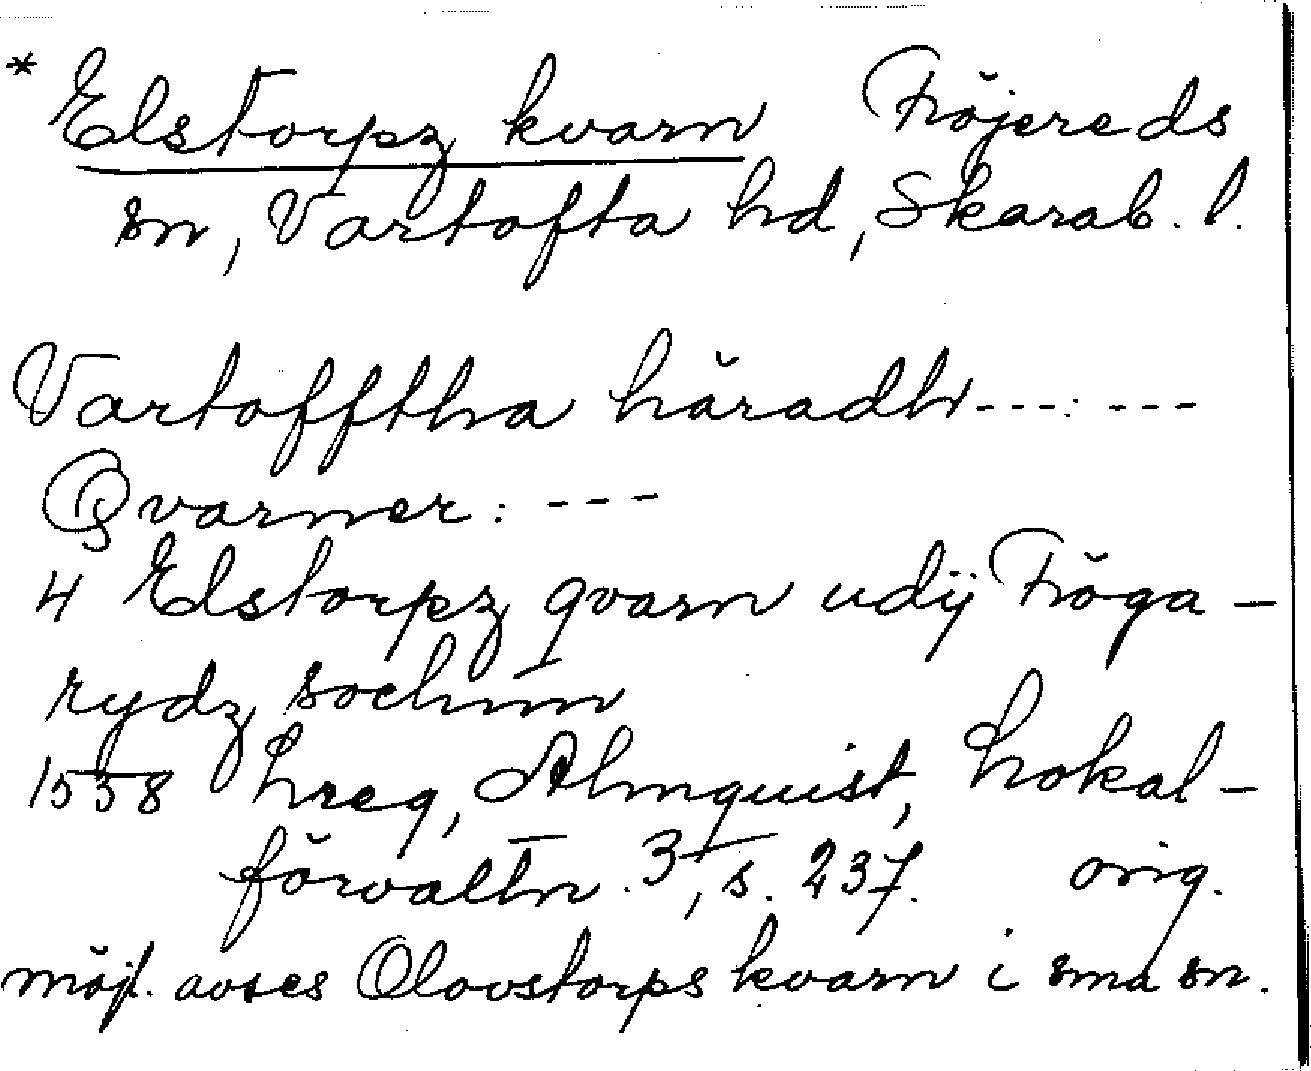 * Elstorpz kvarn Fröjereds
sn, Vartofta hd, Skarab. l.
Vartofftha häradh --- : ---
Qvarner: ---
4 Elstorpz qvarn udij Fröga-
rydz sochnn
1558 hreg, Almquist, Lokal-
förvaltn. 3, s. 237. orig.
möjl. avses Olovstorps kvarn i sma sn.